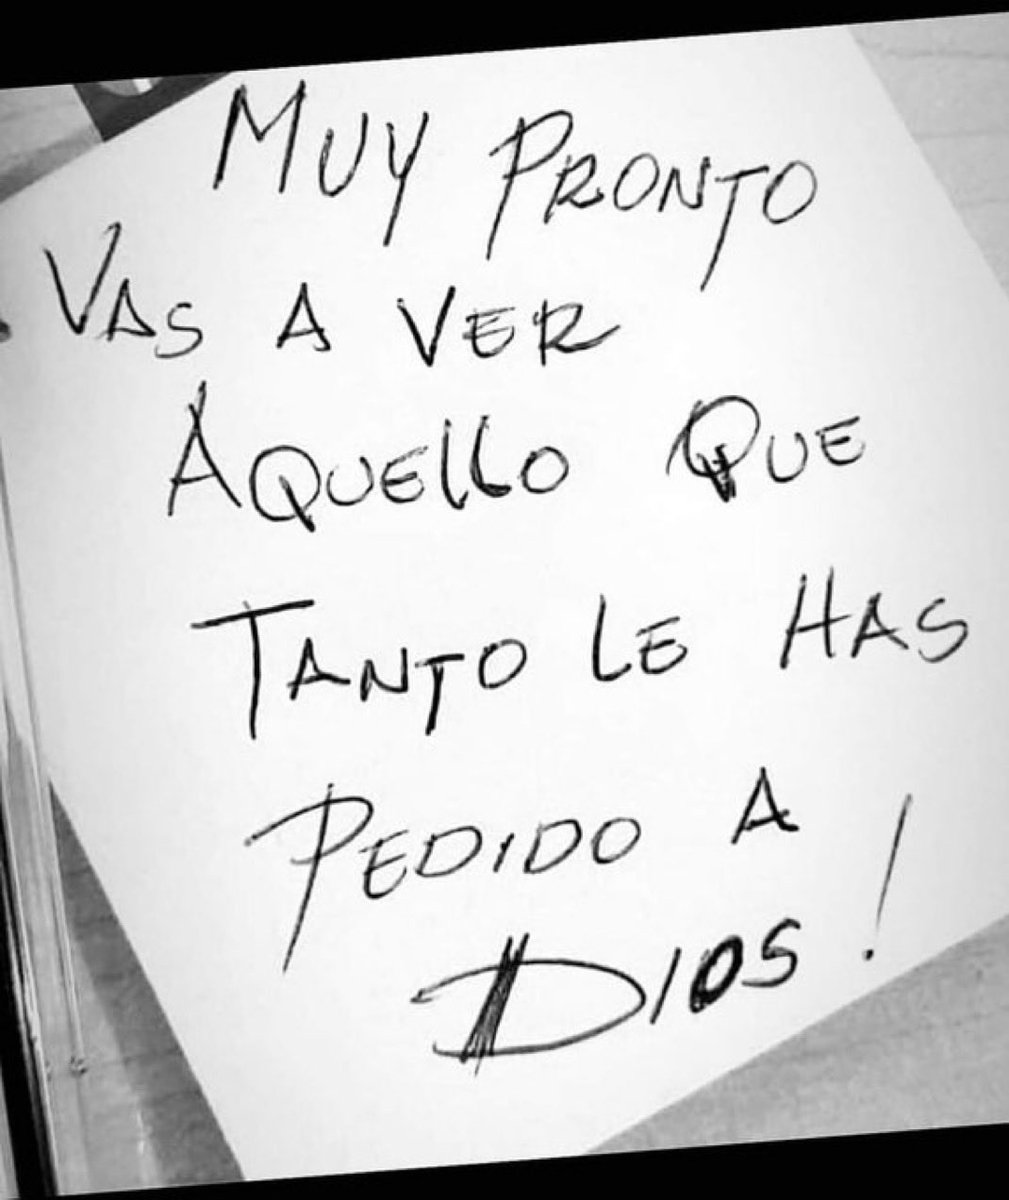 MUY PRONTO
VAS A VER
AQUELLO QUE
TANTO LE HAS
PEDIDO A
DIOS!